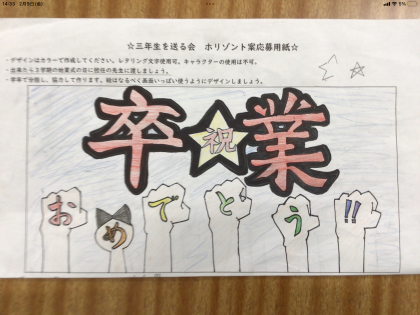 14:33 2月8日(金)
☆三年生を送る会 ホリゾント案応募用紙☆
・デザインはカラーで作成してください。レタリング文字使用可。キャラクターの使用は不可。
・出来たら３学期の始業式の日に担任の先生に渡しましょう。
・学年で分担し、協力して作ります。絵はなるべく画面いっぱい使うようにデザインしましょう。
卒祝業
おめでとう!!